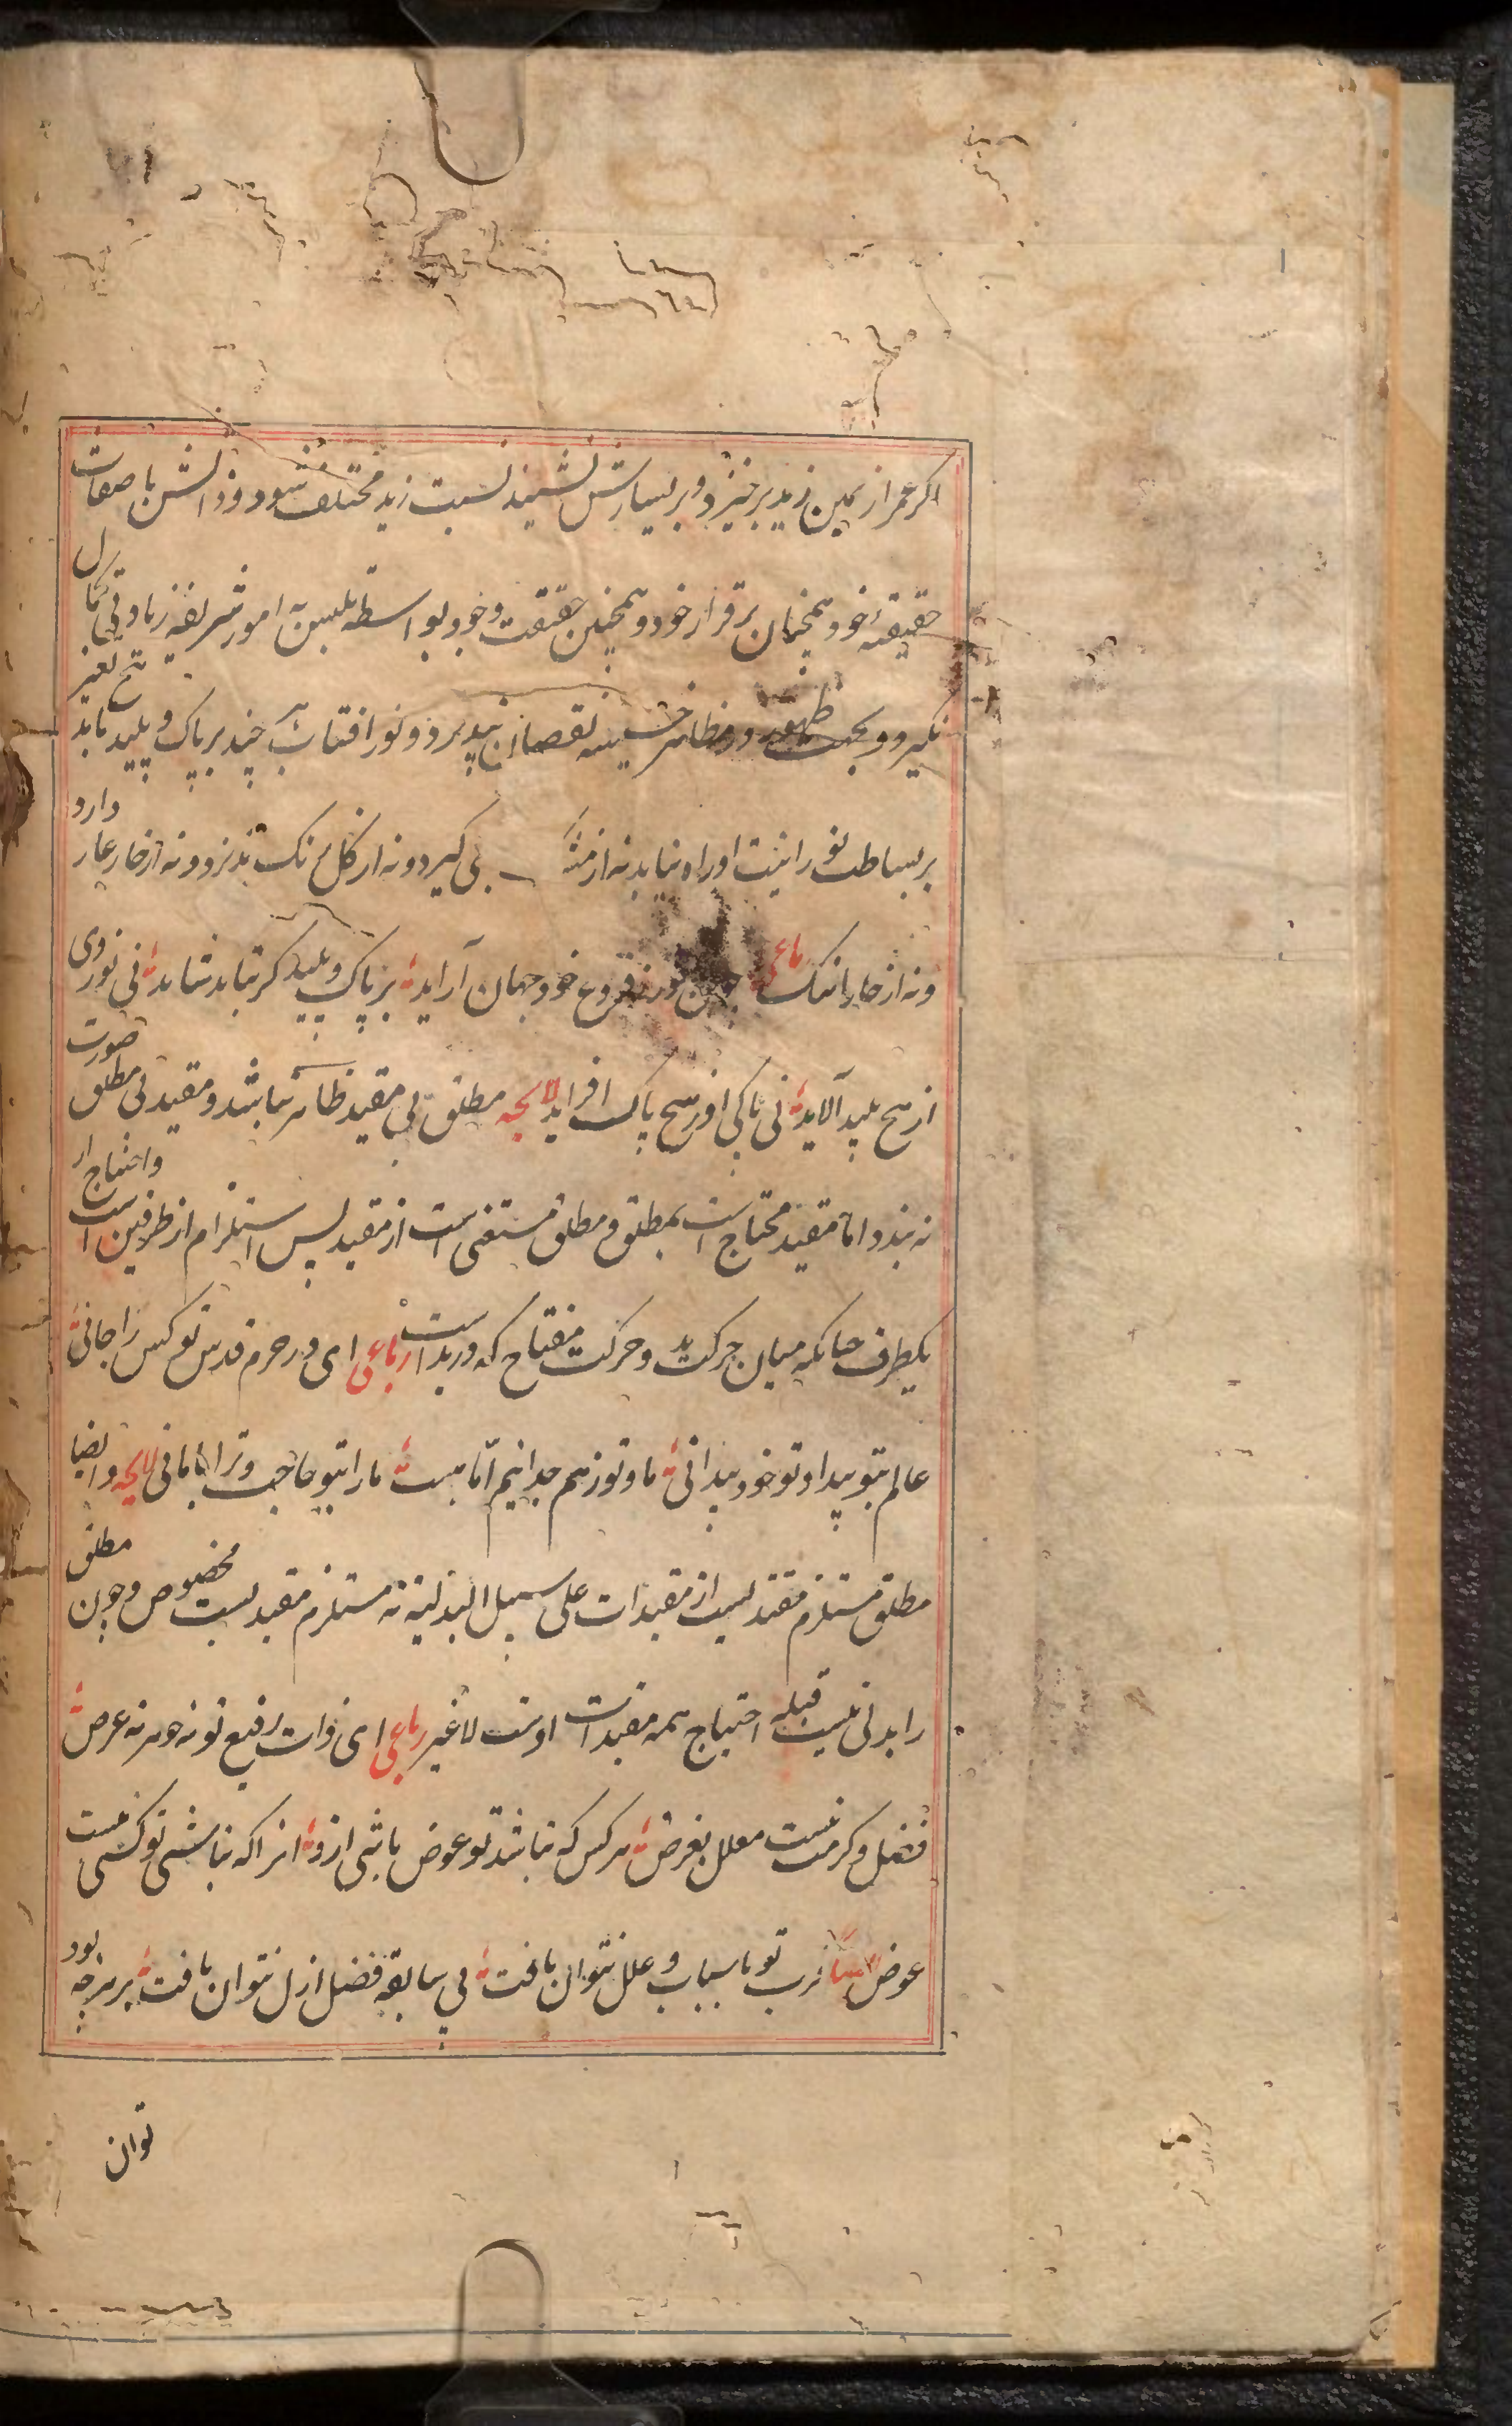 اکر عمر از یمین زید برخیزد و بر یسارش نشیند نسبت زید مختلف شود و ذاتش با صفات
حقیقیهٔ خود همچنان برقرار خود و همچنین حقیقت وجود بواسطه تلبس به امور شریفه زیادتی کمال
نکیرد و بجهت ظهور در مظاهر خسیسه نقصان نپذیرد و نور افتاب هر چند بر پاک و پلید تابد هیچ تغیر
بر بساطت نورانیت او راه نیابد نه از مشک بوی کیرد و نه از کل رنک پذیرد و نه از خار عار دارد
و نه از خارا ننک رباعی چون خور ز فروغ خود جهان آراید بر پاک و پلید کر بتابد شاید نی نور وی
از هیچ پلید آلاید نی پاکی او ز هیچ پاک افزاید لایحه مطلق بی مقید ظاهر نباشد و مقید بی مطلق صورت
نه بندد اما مقید محتاج است بمطلق و مطلق مستغنی است از مقید پس استلزام از طرفین است و احتیاج از
یکطرف چنانکه میان حرکت ید و حرکت مفتاح که در ید است رباعی ای در حرم قدس تو کس را جا نی
عالم بتو پیدا و تو خود پیدا نی ما و تو ز هم جدا نیم اما هست ما را بتو حاجت و ترا با ما نی لایحه و ایضا
مطلق مستلزم مقیدیست از مقیدات علی سبیل البدلیة نه مستلزم مقیدیست مخصوص و چون مطلق
را بدلی نیست قبله احتیاج همه مقیدات اوست لا غیر رباعی ای ذات رفیع تو نه جوهر نه عرض
فضل و کرمت نیست معلل بغرض هر کس که نباشد تو عوض باشی ازو انرا که نباشی تو کسی نیست
عوض قرب تو باسباب و علل نتوان یافت بی سابقه فضل ازل نتوان یافت بر هر چه بود
توان